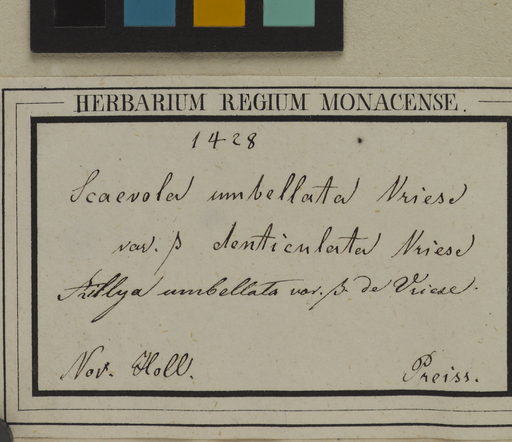 HERBARIUM REGIUM MONACENSE.
1428
Scaevola umbellata Vriese
var. β denticulata Vriese
umbellata var. β. de Vriese.
Nov. Holl.
Preiss.